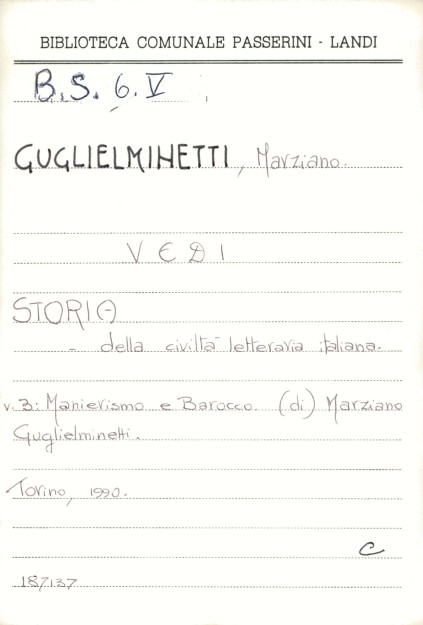 BIBLIOTECA COMUNALE PASSERINI - LANDI
B.S. 6. V
GUGLIELMINETTI, Marziano.
VEDI
STORIA
- della civiltà letteraria italiana.
v. 3: Manierismo e Barocco. (di) Marziano
Guglielminetti.
Torino, 1990.
C
187137